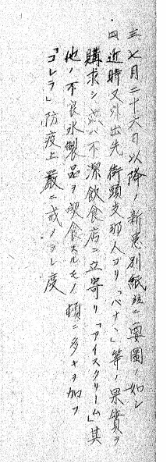 三、七月二十六日以降ノ新患別紙並ニ要図ノ如シ
四、近時又外出先街頭支那人ヨリ「バナヽ」等ノ果実ヲ
購求シ或ハ不潔飲食店ニ立寄リ「アイスクリーム」其
他ノ不良氷製品ヲ喫食スルモノ頓ニ多キヲ加フ
「コレラ」防疫上厳ニ戒メラレ度